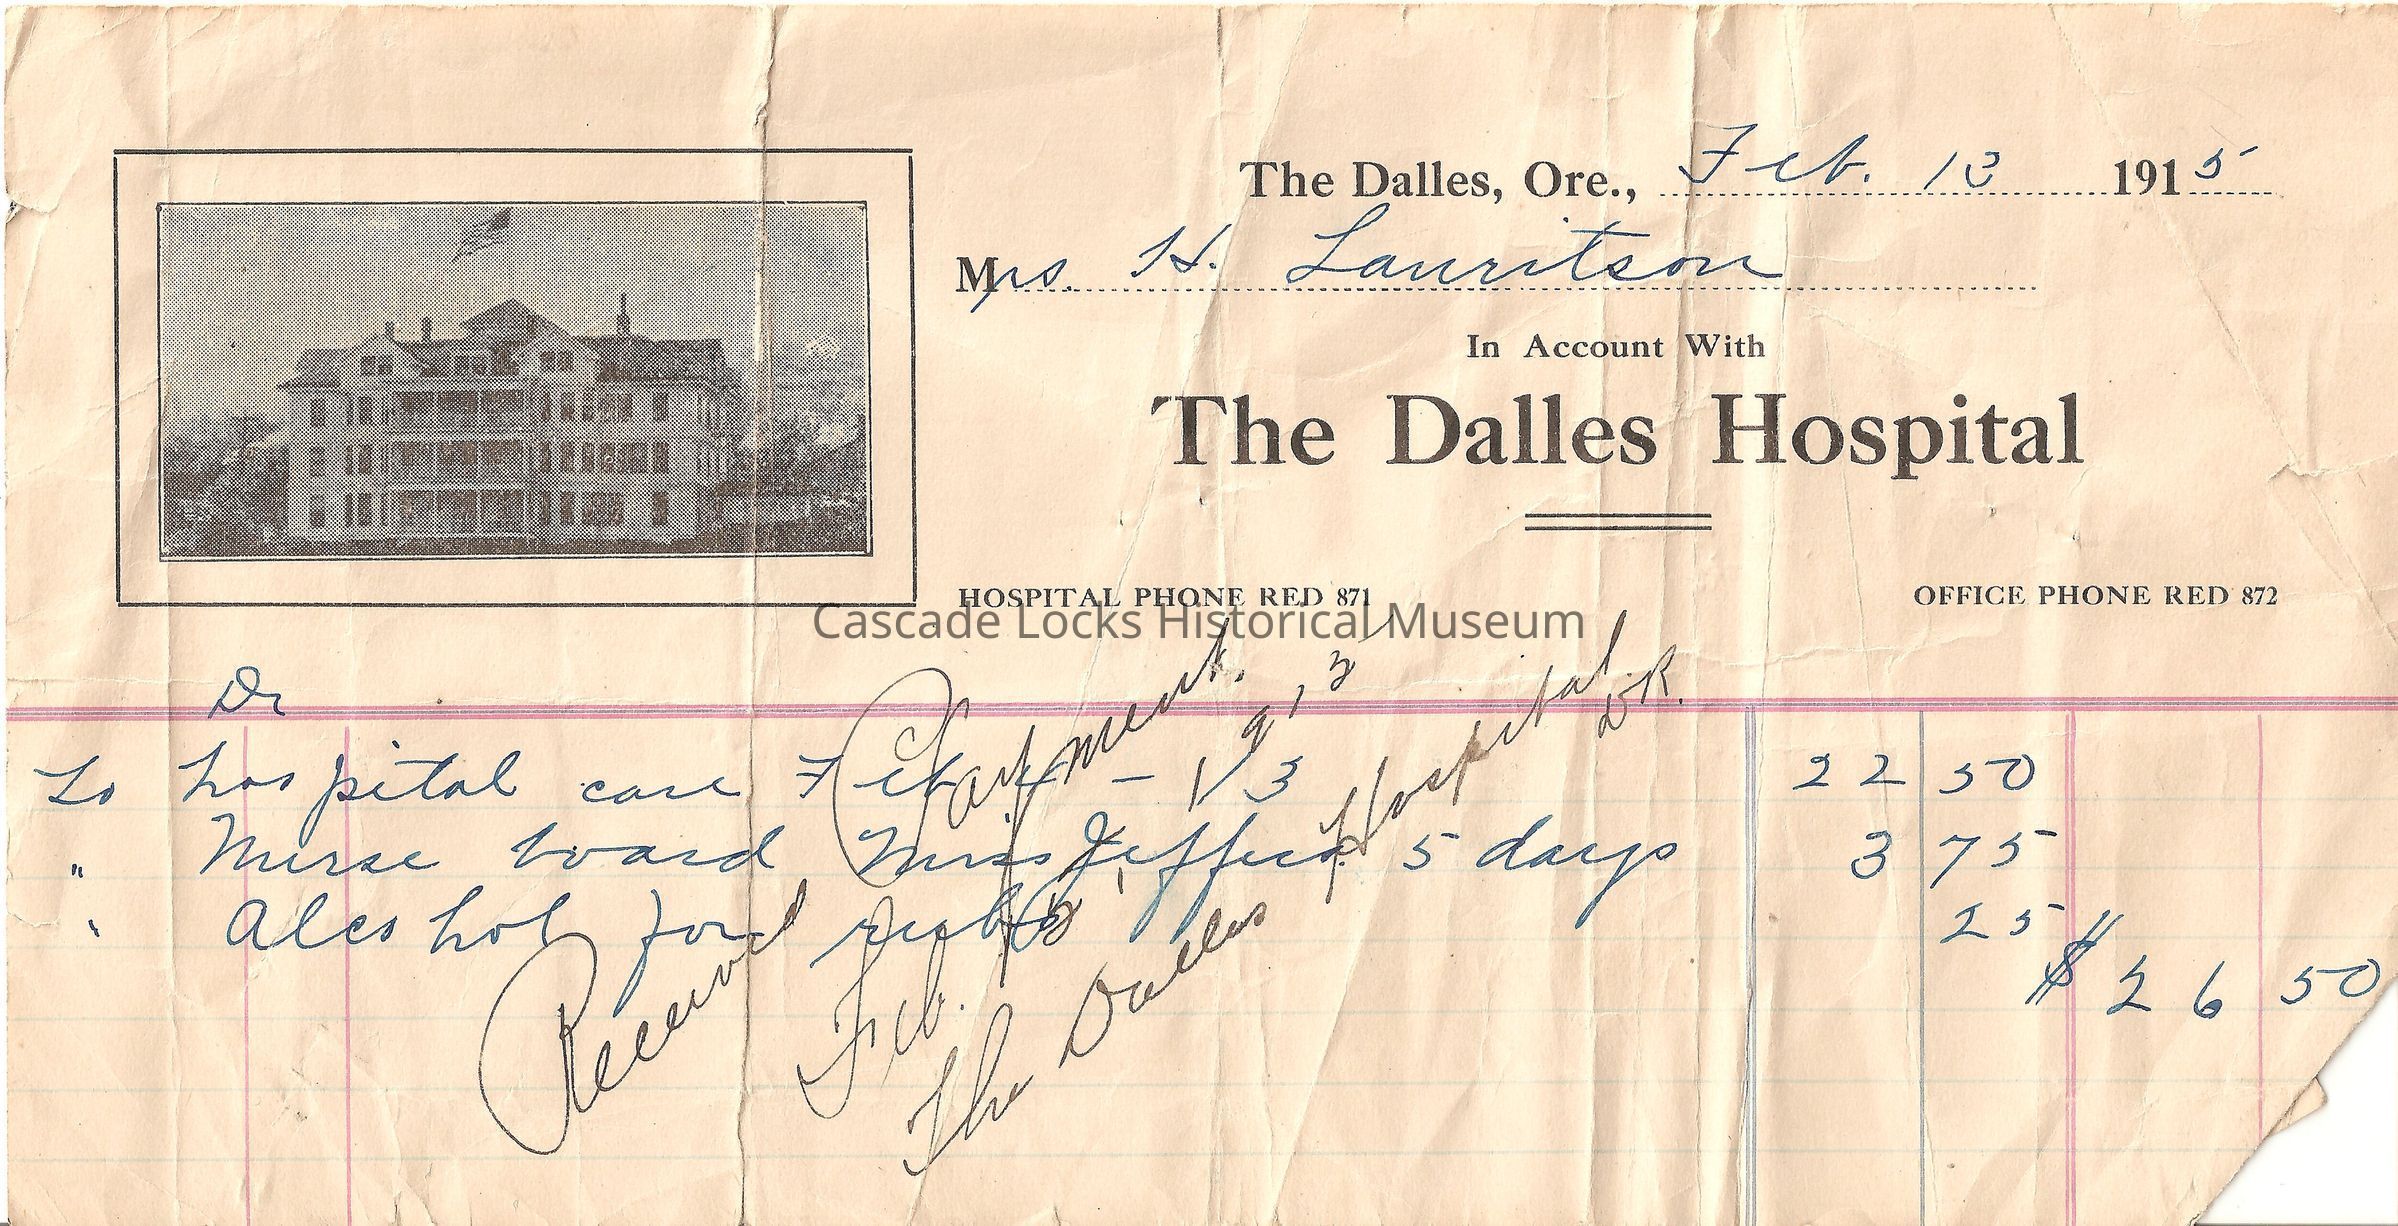 The Dalles, Ore., Feb. 13 1915
Mrs. H. Lauritson
In Account With
The Dalles Hospital
HOSPITAL PHONE RED 871 OFFICE PHONE RED 872
Cascade Locks Historical Museum
Dr
To hospital care Feb 4 - 13 22 50
" Nurse board Miss 5 days 3 75
" Alcohol for rubs 25
$ 26 50
Received Payment.
Feb.
The Dalles Hospital